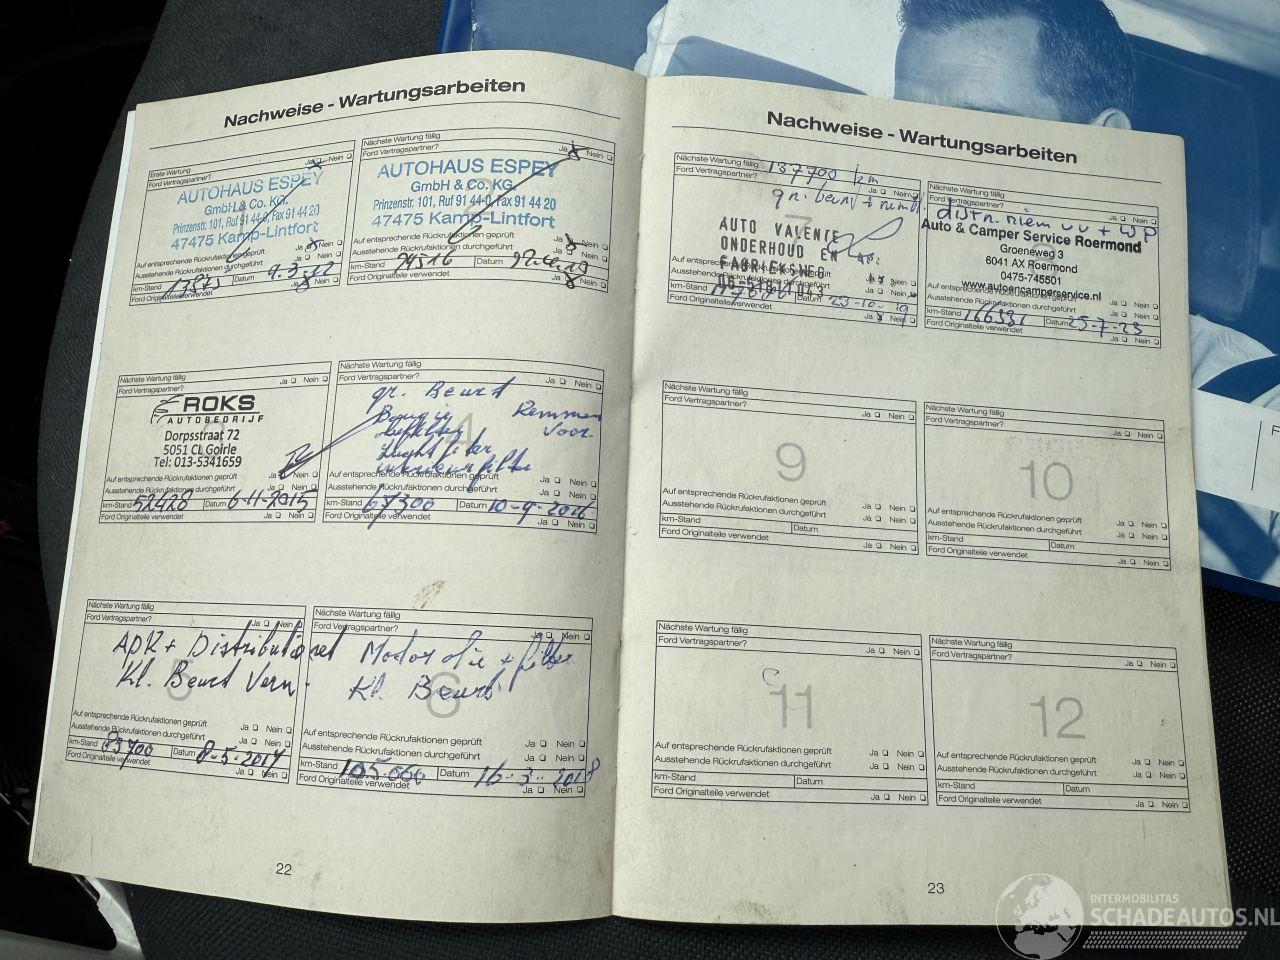 Nachweise - Wartungsarbeiten
Erste Wartung
Ford Vertragspartner? Ja Nein
AUTOHAUS ESPEY
GmbH & Co. KG.
Prinzenstr. 101, Ruf 91 44-0, Fax 91 44 20
47475 Kamp-Lintfort
Auf entsprechende Rückrufaktionen geprüft Ja Nein
Ausstehende Rückrufaktionen durchgeführt Ja Nein
km-Stand Datum
Ford Originalteile verwendet Ja Nein
Nächste Wartung fällig
Ford Vertragspartner? Ja Nein
AUTOHAUS ESPEY
GmbH & Co. KG.
Prinzenstr. 101, Ruf 91 44-0, Fax 91 44 20
47475 Kamp-Lintfort
Auf entsprechende Rückrufaktionen geprüft Ja Nein
Ausstehende Rückrufaktionen durchgeführt Ja Nein
km-Stand Datum
Ford Originalteile verwendet Ja Nein
Nächste Wartung fällig
Ford Vertragspartner? Ja Nein
ROKS
AUTOBEDRIJF
Dorpsstraat 72
5051 CL Goirle
Tel: 013-5341659
Ja Nein
Ausstehende Rückrufaktionen durchgeführt Ja Nein
km-Stand 52428 Datum 6-11-2015
Ford Originalteile verwendet Ja Nein
Nächste Wartung fällig
Ford Vertragspartner? Ja Nein
gr. Beurt
4
Voor-
Auf entsprechende Rückrufaktionen geprüft Ja Nein
Ausstehende Rückrufaktionen durchgeführt Ja Nein
km-Stand 67300 Datum 10-9-2016
Ford Originalteile verwendet Ja Nein
Nächste Wartung fällig
Ford Vertragspartner? Ja Nein
APK + Distributieriet
Kl. Beurt Vern
5
Auf entsprechende Rückrufaktionen geprüft Ja Nein
Ausstehende Rückrufaktionen durchgeführt Ja Nein
km-Stand 83700 Datum
Ford Originalteile verwendet Ja Nein
Nächste Wartung fällig
Ford Vertragspartner? Ja Nein
Motor olie + filter
Kl. Beurt
6
Auf entsprechende Rückrufaktionen geprüft Ja Nein
Ausstehende Rückrufaktionen durchgeführt Ja Nein
km-Stand 105.000 Datum 16-3-2018
Ford Originalteile verwendet Ja Nein
22
Nachweise - Wartungsarbeiten
Nächste Wartung fällig 137700 km
Ford Vertragspartner? Ja Nein
gr. beurt
7
AUTO VALENTE
ONDERHOUD EN
FABRIEKSWEG
Ja Nein
Ja Nein
km-Stand Datum 23-10-19
Ford Originalteile verwendet Ja Nein
Nächste Wartung fällig
Ford Vertragspartner? Ja Nein
distr. riem + WP
Auto & Camper Service Roermond
Groeneweg 3
6041 AX Roermond
0475-745501
www.autoencamperservice.nl
Auf entsprechende Rückrufaktionen geprüft Ja Nein
Ausstehende Rückrufaktionen durchgeführt Ja Nein
km-Stand 166381 Datum 25-7-23
Ford Originalteile verwendet Ja Nein
Nächste Wartung fällig
Ford Vertragspartner? Ja Nein
9
Auf entsprechende Rückrufaktionen geprüft Ja Nein
Ausstehende Rückrufaktionen durchgeführt Ja Nein
km-Stand Datum
Ford Originalteile verwendet Ja Nein
Nächste Wartung fällig
Ford Vertragspartner? Ja Nein
10
Auf entsprechende Rückrufaktionen geprüft Ja Nein
Ausstehende Rückrufaktionen durchgeführt Ja Nein
km-Stand Datum
Ford Originalteile verwendet Ja Nein
Nächste Wartung fällig
Ford Vertragspartner? Ja Nein
11
Auf entsprechende Rückrufaktionen geprüft Ja Nein
Ausstehende Rückrufaktionen durchgeführt Ja Nein
km-Stand Datum
Ford Originalteile verwendet Ja Nein
Nächste Wartung fällig
Ford Vertragspartner? Ja Nein
12
Auf entsprechende Rückrufaktionen geprüft Ja Nein
Ausstehende Rückrufaktionen durchgeführt Ja Nein
km-Stand Datum
Ford Originalteile verwendet Ja Nein
23
INTERMOBILITAS
SCHADEAUTOS.NL